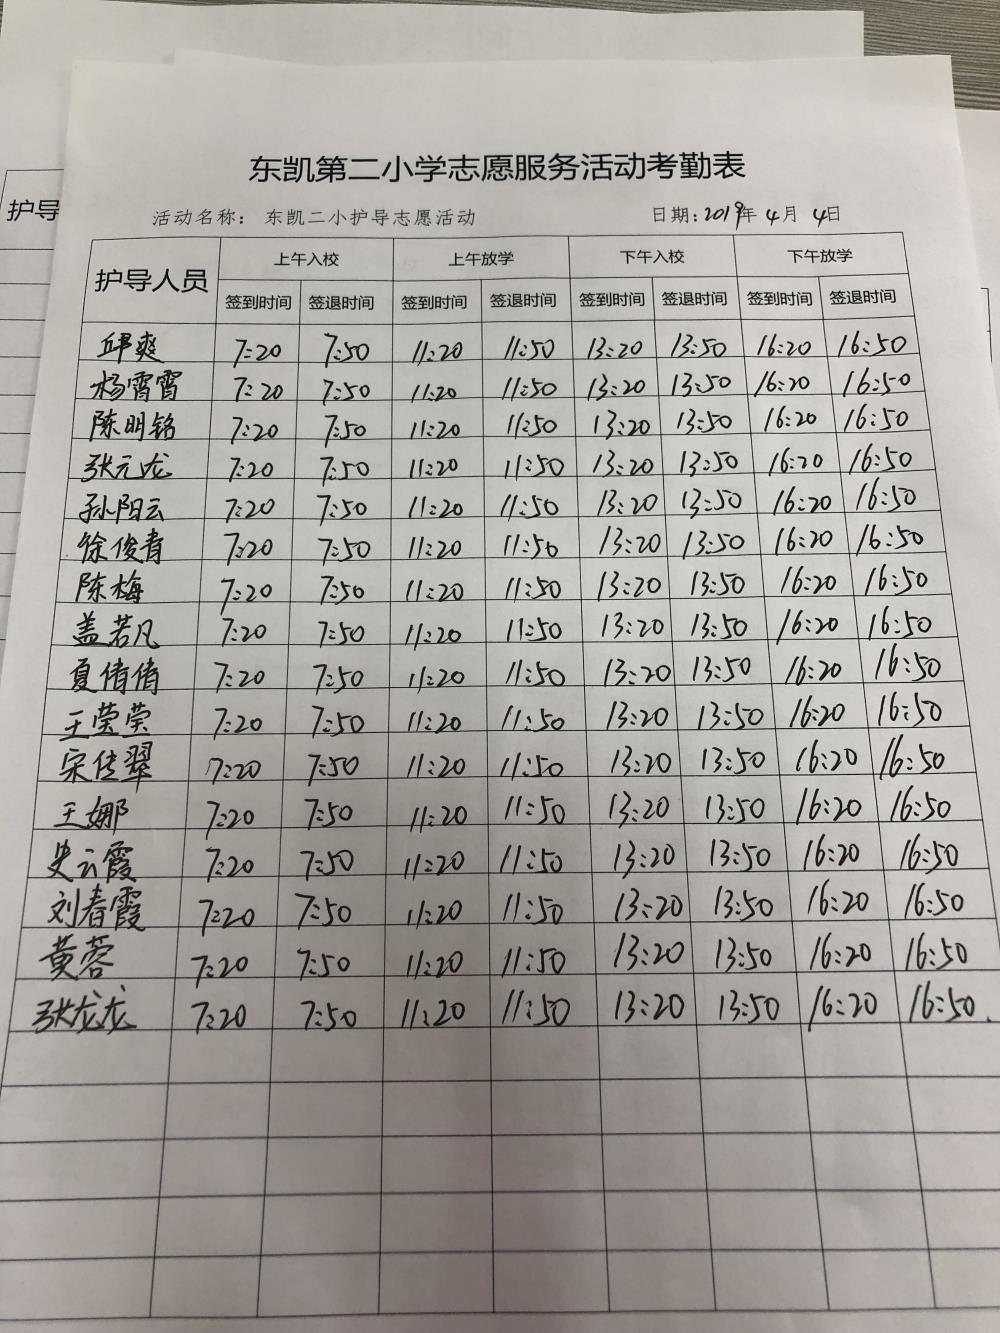 东凯第二小学志愿服务活动考勤表
活动名称：东凯二小护导志愿活动 日期：2019年4月4日
护导
护导人员 上午入校 上午放学 下午入校 下午放学
签到时间 签退时间 签到时间 签退时间 签到时间 签退时间 签到时间 签退时间
邱爽 7:20 7:50 11:20 11:50 13:20 13:50 16:20 16:50
杨霄霄 7:20 7:50 11:20 11:50 13:20 13:50 16:20 16:50
陈明铭 7:20 7:50 11:20 11:50 13:20 13:50 16:20 16:50
张元龙 7:20 7:50 11:20 11:50 13:20 13:50 16:20 16:50
孙阳云 7:20 7:50 11:20 11:50 13:20 13:50 16:20 16:50
徐俊青 7:20 7:50 11:20 11:50 13:20 13:50 16:20 16:50
陈梅 7:20 7:50 11:20 11:50 13:20 13:50 16:20 16:50
盖若凡 7:20 7:50 11:20 11:50 13:20 13:50 16:20 16:50
夏倩倩 7:20 7:50 11:20 11:50 13:20 13:50 16:20 16:50
王莹荣 7:20 7:50 11:20 11:50 13:20 13:50 16:20 16:50
宋传翠 7:20 7:50 11:20 11:50 13:20 13:50 16:20 16:50
王娜 7:20 7:50 11:20 11:50 13:20 13:50 16:20 16:50
史云霞 7:20 7:50 11:20 11:50 13:20 13:50 16:20 16:50
刘春霞 7:20 7:50 11:20 11:50 13:20 13:50 16:20 16:50
黄蓉 7:20 7:50 11:20 11:50 13:20 13:50 16:20 16:50
张龙龙 7:20 7:50 11:20 11:50 13:20 13:50 16:20 16:50.